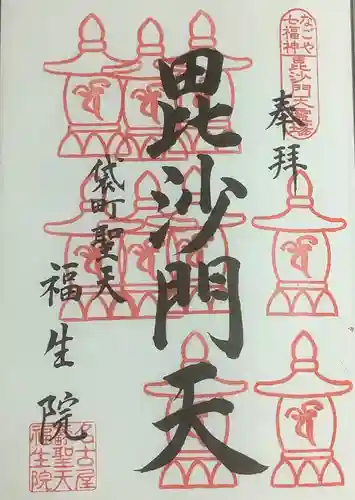 なごや
七福神
毘沙門天霊場
奉拝
毘沙門天
袋町聖天
福生院
名古屋
袋町聖天
福生院